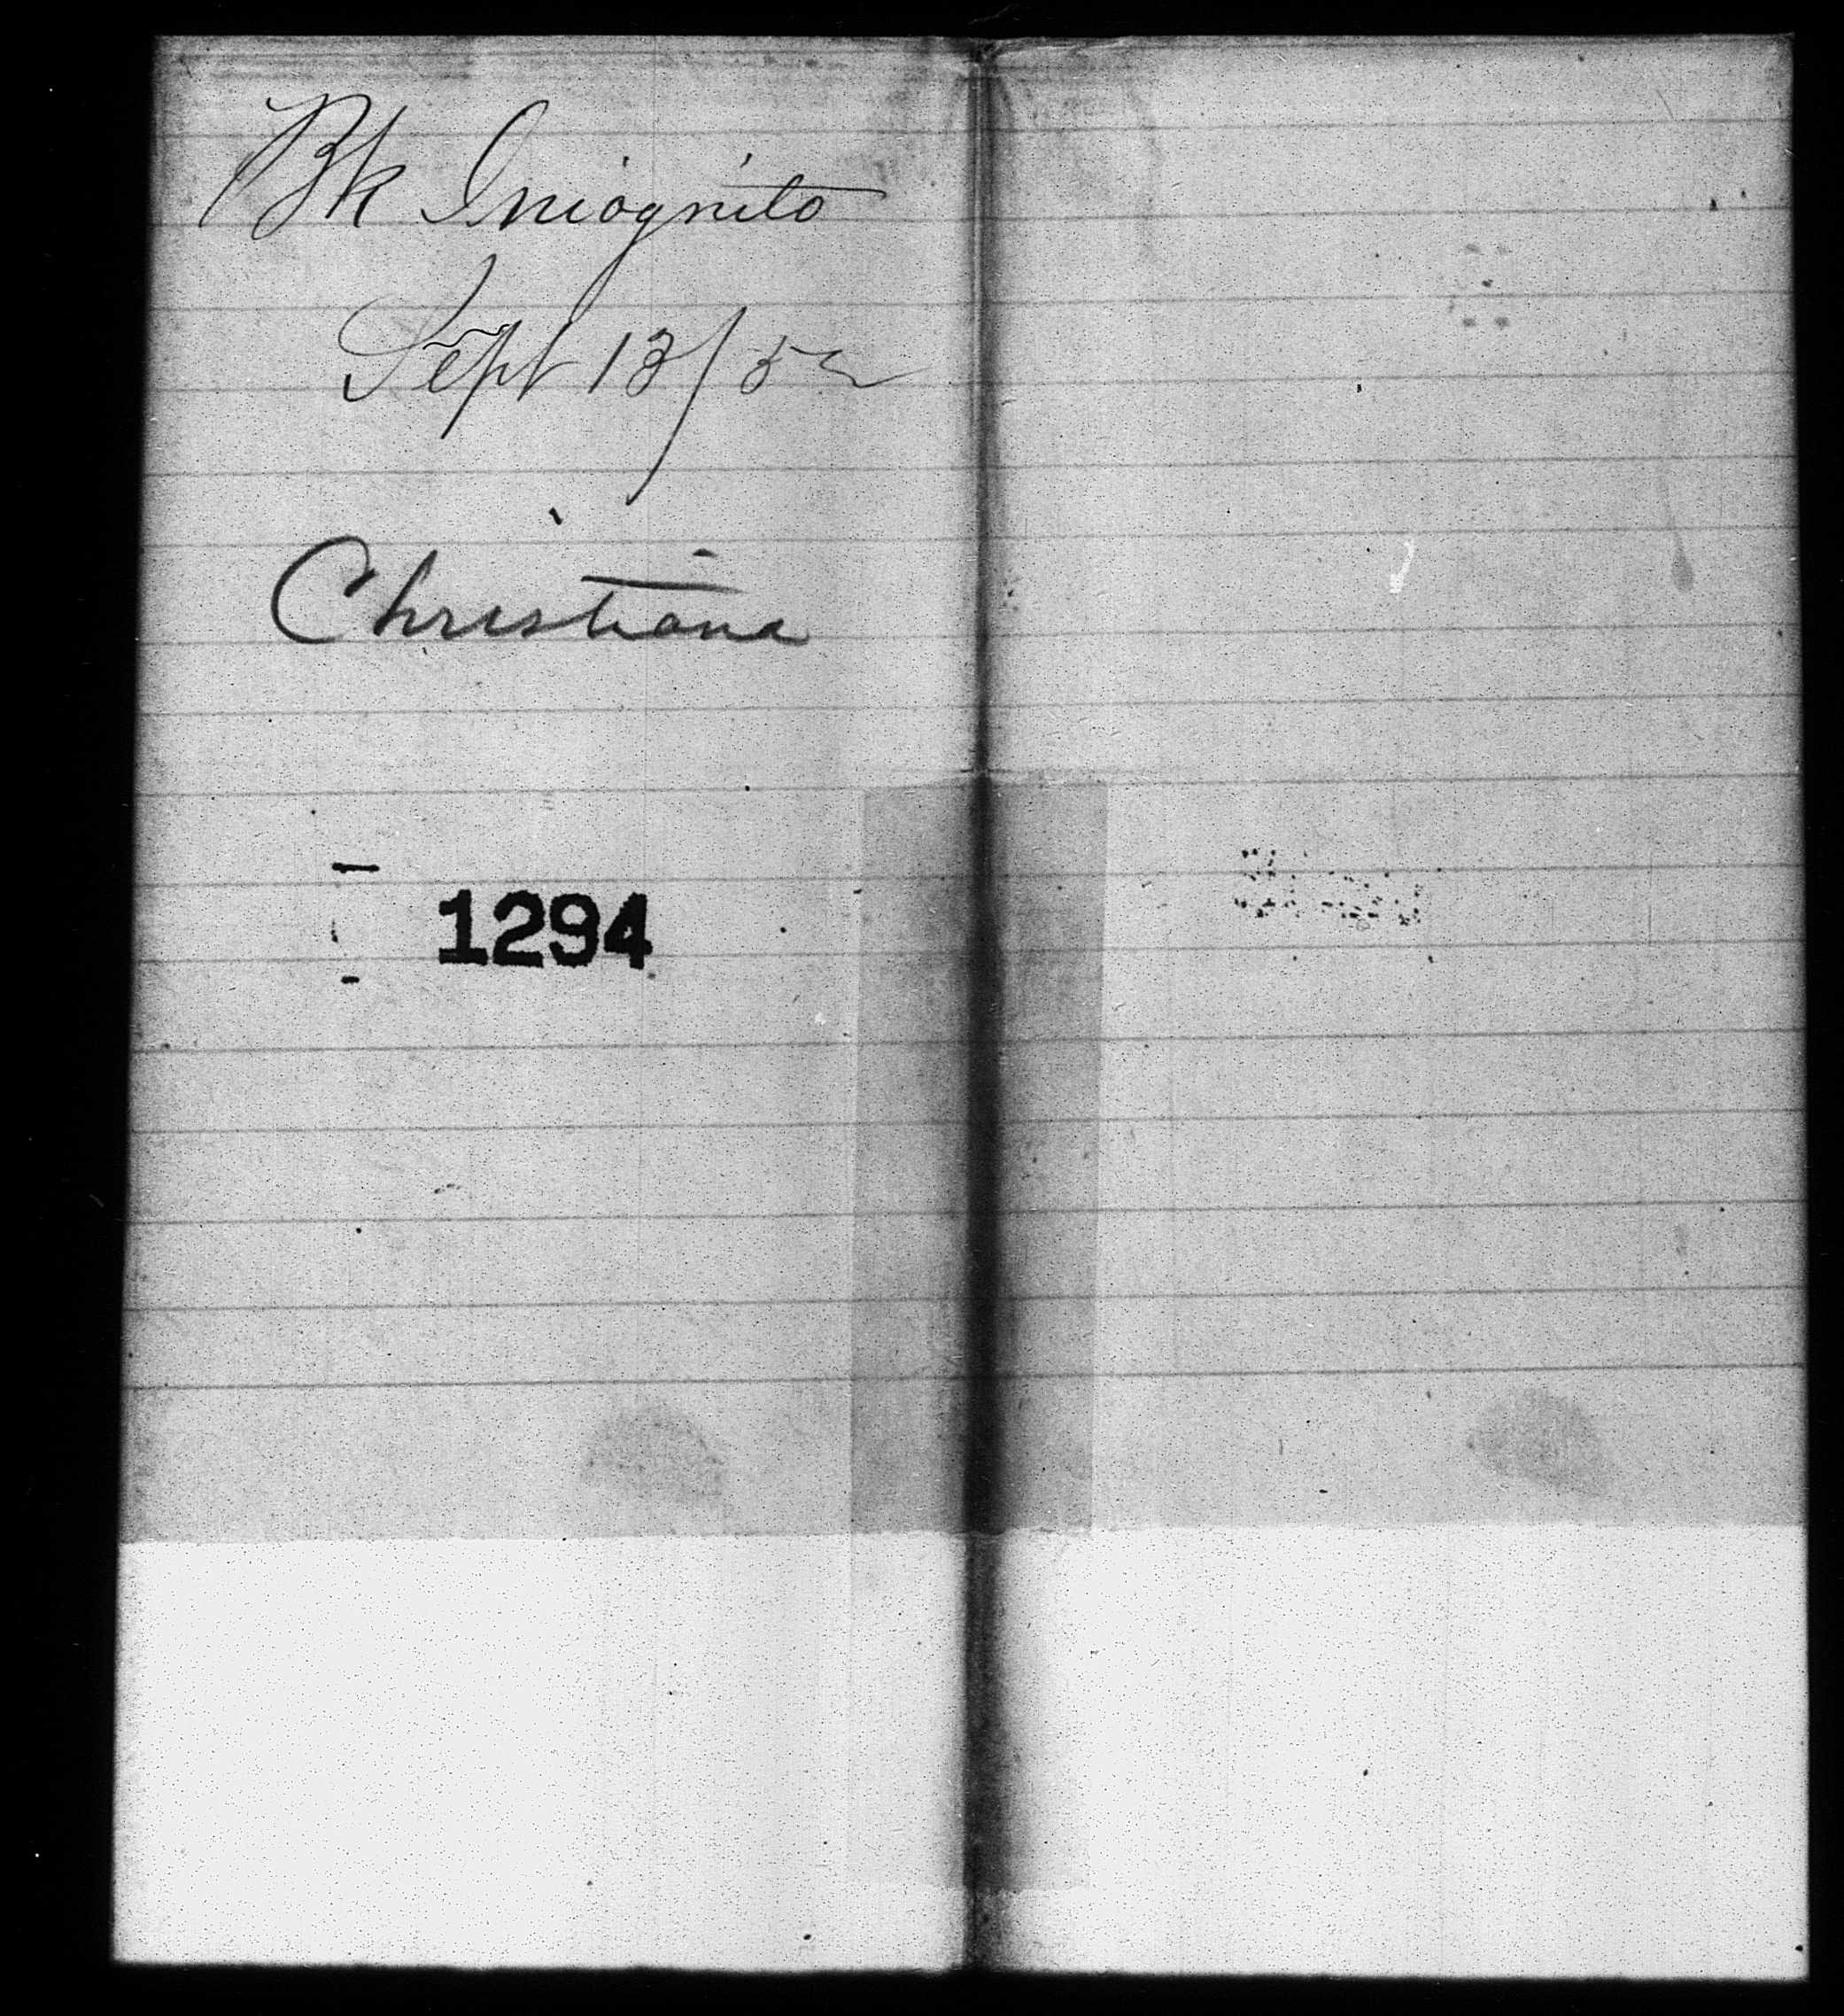 Bk Incognito
Sept 13/52
Christiana
1294